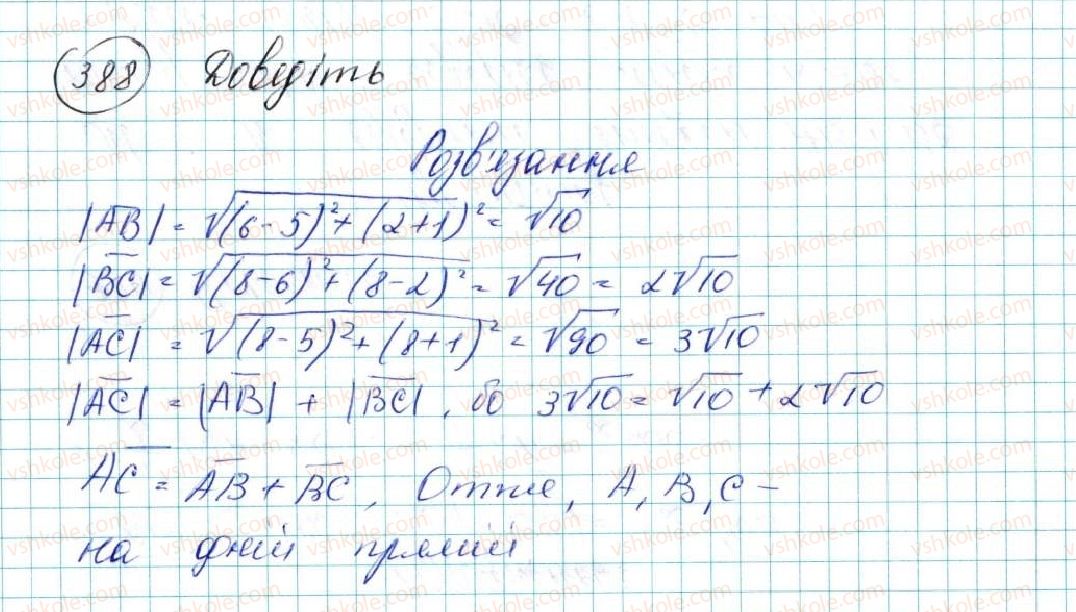 388 Доведіть
Розв'язання
|AB| = √(6-5)²+(2+1)² = √10
|BC| = √(8-6)²+(8-2)² = √40 = 2√10
|AC| = √(8-5)²+(8+1)² = √90 = 3√10
|AC| = |AB| + |BC|, бо 3√10 = √10 + 2√10
AC = AB + BC, Отже, A, B, C –
на дній прямій